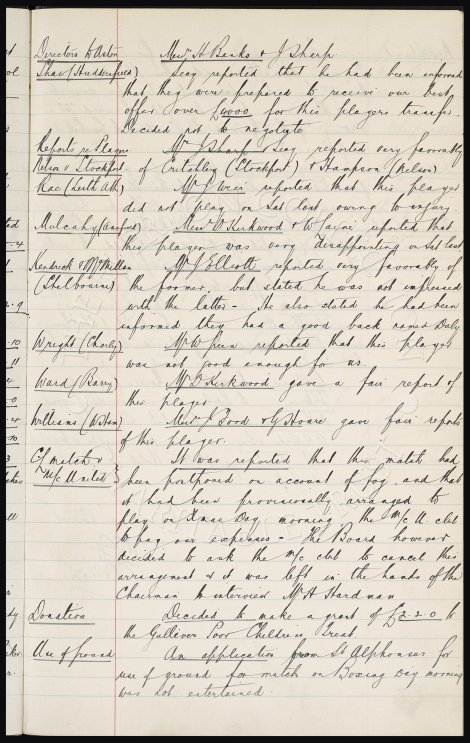 Directors to Aston Messrs H Banks & J Sharp.
Shaw (Huddersfield) Secy reported that he had been informed
that they were prepared to receive our best
offer over £4000 for this players transfer.
Decided not to negotiate
Reports re Players Mr J Sharp & Secy reported very favorably
Nelson v Stockport. of Critchley (Stockport) & Hampson (Nelson)
Rae (Leith Ath) Mr J Weir reported that this player
did not play on Sat last owing to injury.
Mulcahy Messrs D Kirkwood & W Laine reported that
this player was very disappointing on Sat last
Kendrick & McMillan Mr J Elliott reported very favorably of
(Shelbourne) the former, but stated he was not impressed
with the latter - He also stated he had been
informed they had a good back named Daly
Wright (Chorley) Mr W reported that this player
was not good enough for us.
Ward (Barry) Mr D Kirkwood gave a fair report of
this player.
Williams (W Ham) Messrs J Wood & G Hoare gave fair reports
of this player.
CL match v It was reported that this match had
M/c United been postponed on account of fog and that
it had been provisionally arranged to
play on Xmas Day morning the M/c U. club
to pay our expenses - The Board however
decided to ask the M/c club to cancel this
arrangement & it was left in the hands of the
Chairman to interview Mr H Hardman
Donation Decided to make a grant of £2.2.0 to
the Gulliver Poor Childrens Treat.
Use of ground An application from St Alphonsus for
use of ground for match on Boxing Day morning
was not entertained.